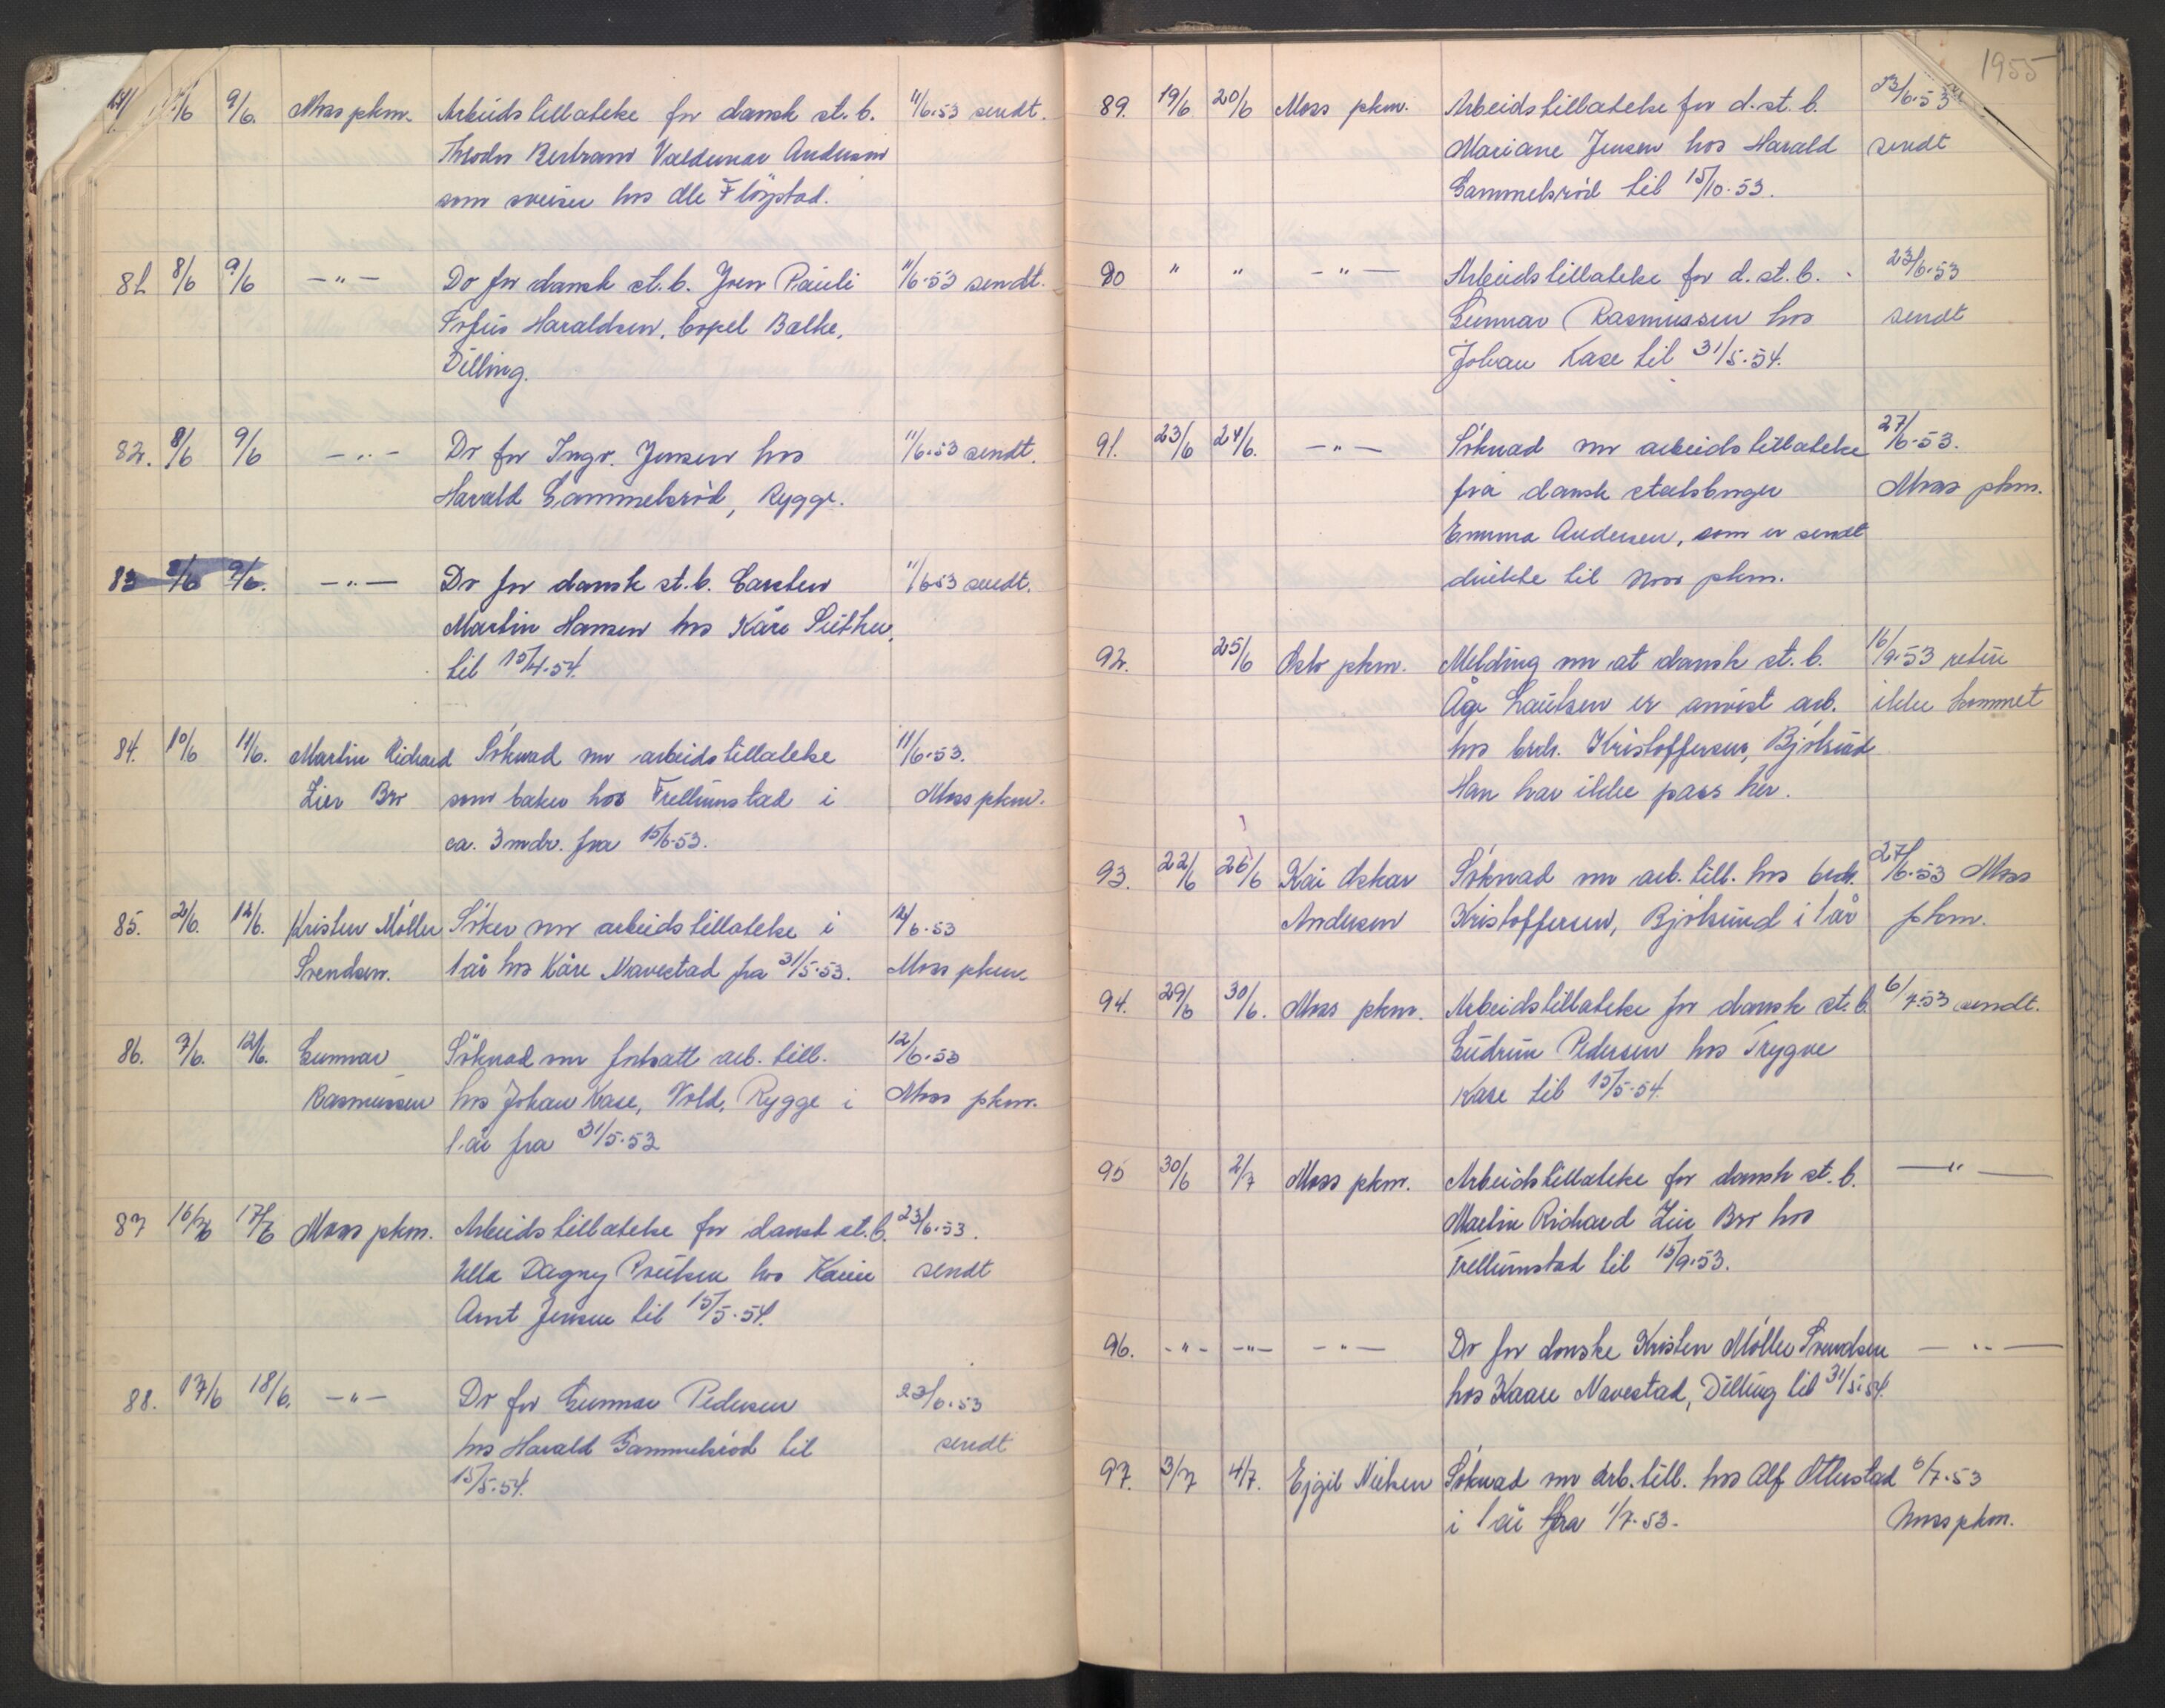 9/6. Moss pkm. Arbeidstillatelse for dansk st. b. 11/6.53 sendt.
Bertram Valdemar Andersen
som sveiser hos Ole Fløystad.
81 8/6 9/6 -"- Do for dansk st. b. Jven Pauli 11/6.53 sendt.
Sofus Haraldsen, Balke,
Dilling.
82. 8/6 9/6 -"- Do for Ingv. Jensen hos 11/6.53 sendt.
Harald Gammelsrød, Rygge.
83 8/6 9/6. -"- Do for dansk st. b. Carsten 11/6 53 sendt.
Martin Hansen hos Kåre
til 15/4.54.
84. 10/6 11/6. Martin Richard Søknad om arbeidstillatelse 11/6.53.
Lier Bro som baker hos Trellumstad i Moss pkm.
ca. 3 mdr. fra 15/6.53.
85. 2/6. 12/6. Kristen Möller Söker om arbeidstillatelse i 12/6.53
Svendsen. 1 år hos Kåre Navestad fra 31/5.53. Moss pkm.
86. 9/6. 12/6. Gunnar Söknad om fortsatt arb. till. 12/6.53
Rasmussen hos Johan Kase, Vold, Rygge i Moss pkm.
1 år fra 31/5.53
87 16/6 17/6 Moss pkm. Arbeidstillatelse for dansk st. b. 23/6.53.
Ulla Dagny Poulsen hos Karin sendt
Arnt Jensen til 15/5.54.
88. 17/6 18/6. -"- Do for Gunnar Pedersen 23/6.53
hos Harald Gammelsrød til sendt
15/5.54.
1955
89. 19/6 20/6 Moss pkm. Arbeidstillatelse for d. st. b. 23/6.53
Mariane Jensen hos Harald sendt
Gammelsrød til 15/10.53.
90 " " -"- Arbeidstillatelse for d. st. b. 23/6.53
Gunnar Rasmussen hos sendt
Johan Kase til 31/5.54.
91. 23/6 24/6. -"- Söknad om arbeidstillatelse 27/6.53.
fra dansk statsborger Moss pkm.
Emma Andersen, som er sendt
direkte til Moss pkm.
92. 25/6 Oslo pkm. Melding om at dansk st. b. 16/9.53 retur
Åge Lauitsen er anvist arb. ikke kommet
hos brdr. Kristoffersen, Bjölsund
Han har ikke pass her.
93. 22/6 26/6 Kai Oskar Söknad om arb. till. hos brdr. 27/6.53 Moss
Andersen Kristoffersen, Bjölsund i 1 år pkm.
94. 29/6 30/6. Moss pkm. Arbeidstillatelse for dansk st. b. 6/7.53 sendt.
Gudrun Pedersen hos Trygve
Kase til 15/5.54.
95 30/6 2/7 Moss pkm. Arbeidstillatelse for dansk st. b. -"-
Martin Richard Lier Bro hos
Trellumstad til 15/9.53.
96. -"- -"- -"- Do for danske Kristen Möller Svendsen -"-
hos Kaare Navestad, Dilling til 31/5.54.
97. 3/7 4/7. Ejgil Nielsen Söknad om arb. till. hos Alf Ottarstad 6/7.53
i 1 år fra 1/7.53. Moss pkm.